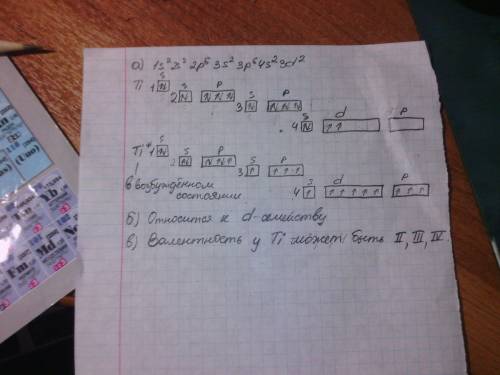 а) 1s² 2s² 2p⁶ 3s² 3p⁶ 4s² 3d²
Ti 1 s
2 s p
3 s p
4 s d p
Ti* 1 s
2 s p
3 s p
4 s d p
в возбуждённом
состоянии
б) Относится к d-семейству
в) Валентность у Ti может быть II, III, IV.
Fm
Md
No